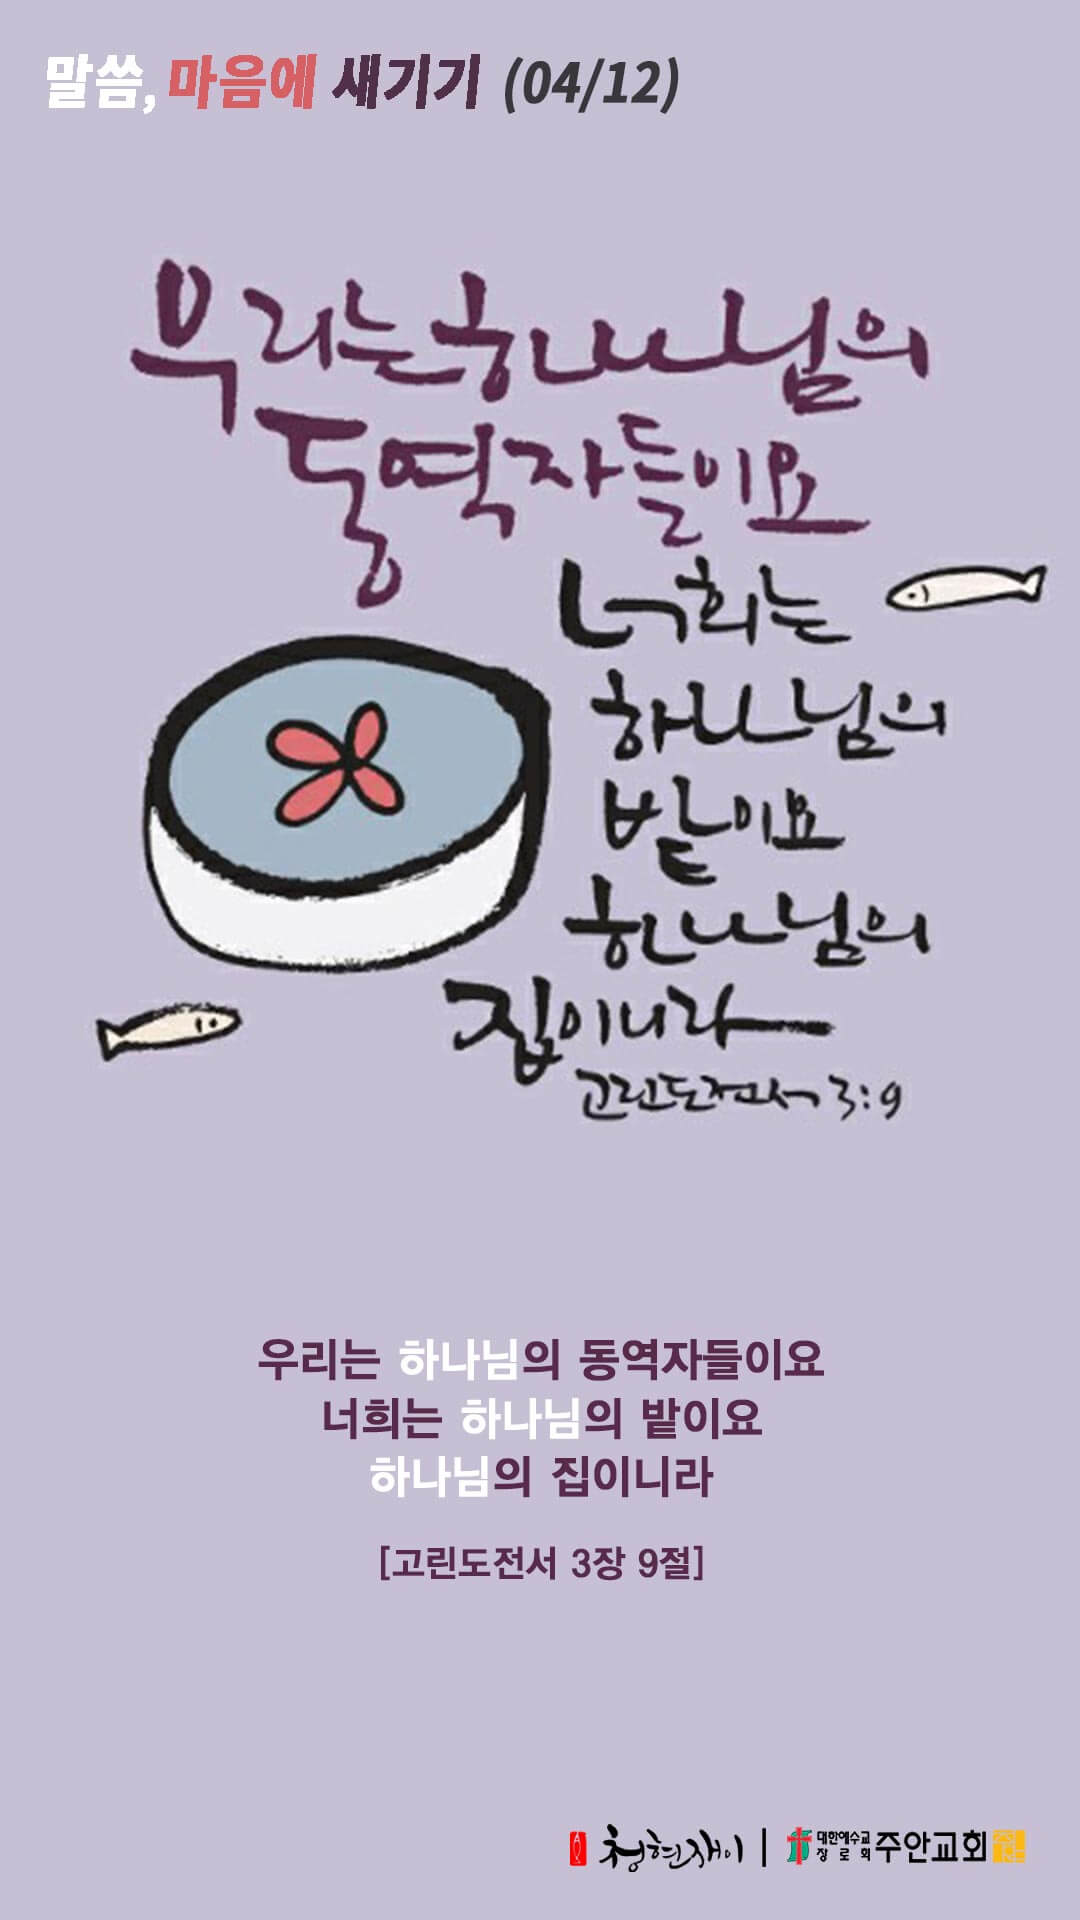 말씀, 마음에 새기기 (04/12)
우리는 하나님의
동역자들이요
너희는
하나님의
밭이요
하나님의
집이니라
고린도전서 3:9
우리는 하나님의 동역자들이요
너희는 하나님의 밭이요
하나님의 집이니라
[고린도전서 3장 9절]
청현재이 | 대한예수교 장로회 주안교회